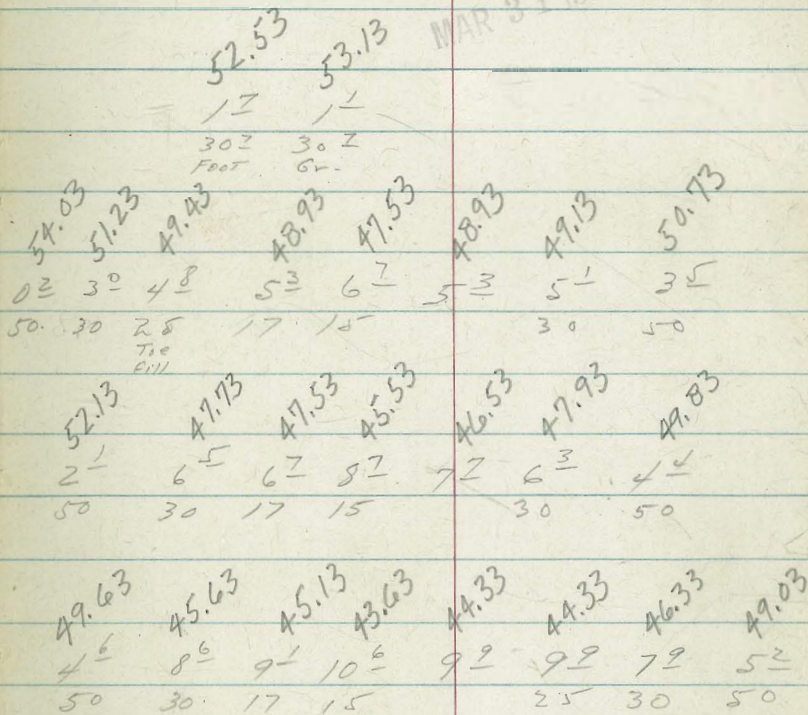 MAR 31
52.53 53.13
1⁷ 1¹
30² 30²
Foot Gr.
54.03 51.23 49.43 48.93 47.53 48.93 49.13 50.73
0² 3⁰ 4⁸ 5³ 6⁷ 5³ 5¹ 3⁵
50. 30 25 17 15 30 50
Toe
Fill
52.13 47.73 47.53 45.53 46.53 47.93 49.83
2¹ 6⁵ 6⁷ 8⁷ 7⁷ 6³ 4⁴
50 30 17 15 30 50
49.63 45.63 45.13 43.63 44.33 44.33 46.33 49.03
4⁶ 8⁶ 9¹ 10⁶ 9⁹ 9⁹ 7⁹ 5²
50 30. 17 15 25 30 50